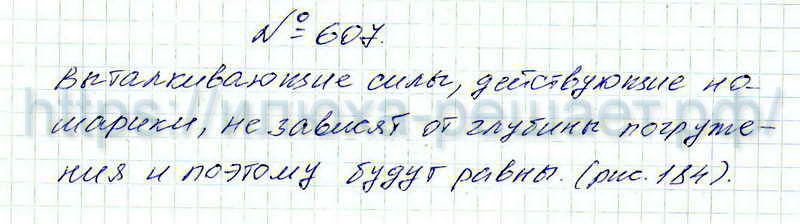 № 607.
Выталкивающие силы, действующие на
шарики, не зависят от глубины погруже-
ния и поэтому будут равны. (рис. 184).